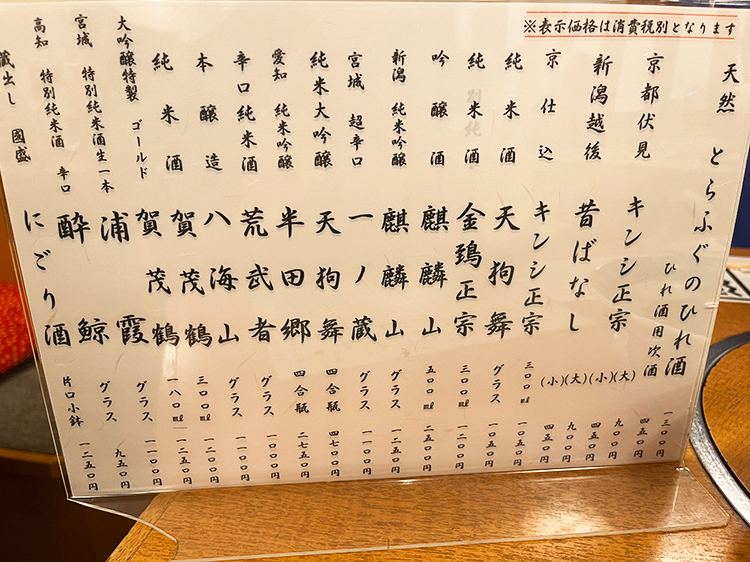 ※表示価格は消費税別となります
天然 とらふぐのひれ酒 一三〇〇円
ひれ酒用次酒 四五〇円
京都伏見 キンシ正宗 (大) 九〇〇円
(小) 四五〇円
新潟越後 昔ばなし (大) 九〇〇円
(小) 四五〇円
京仕込 キンシ正宗 三〇〇㎖ 一二〇〇円
純米酒 天狗舞 グラス 一〇五〇円
純米酒 金鵄正宗 三〇〇㎖ 一二〇〇円
吟醸酒 麒麟山 五〇〇㎖ 二五〇〇円
新潟 純米吟醸 麒麟山 グラス 一二五〇円
宮城 超辛口 一ノ蔵 グラス 一一〇〇円
純米大吟醸 天狗舞 四合瓶 四七〇〇円
愛知 純米吟醸 半田郷 四合瓶 二七五〇円
辛口純米酒 荒武者 グラス 一〇〇〇円
本醸造 八海山 グラス 一一〇〇円
純米酒 賀茂鶴 三〇〇㎖ 一二五〇円
大吟醸特製 ゴールド 賀茂鶴 一八〇㎖ 一一〇〇円
宮城 特別純米酒生一本 浦霞 グラス 一一〇〇円
高知 特別純米酒 辛口 酔鯨 グラス 九五〇円
蔵出し 國盛 にごり酒 片口小鉢 一二五〇円